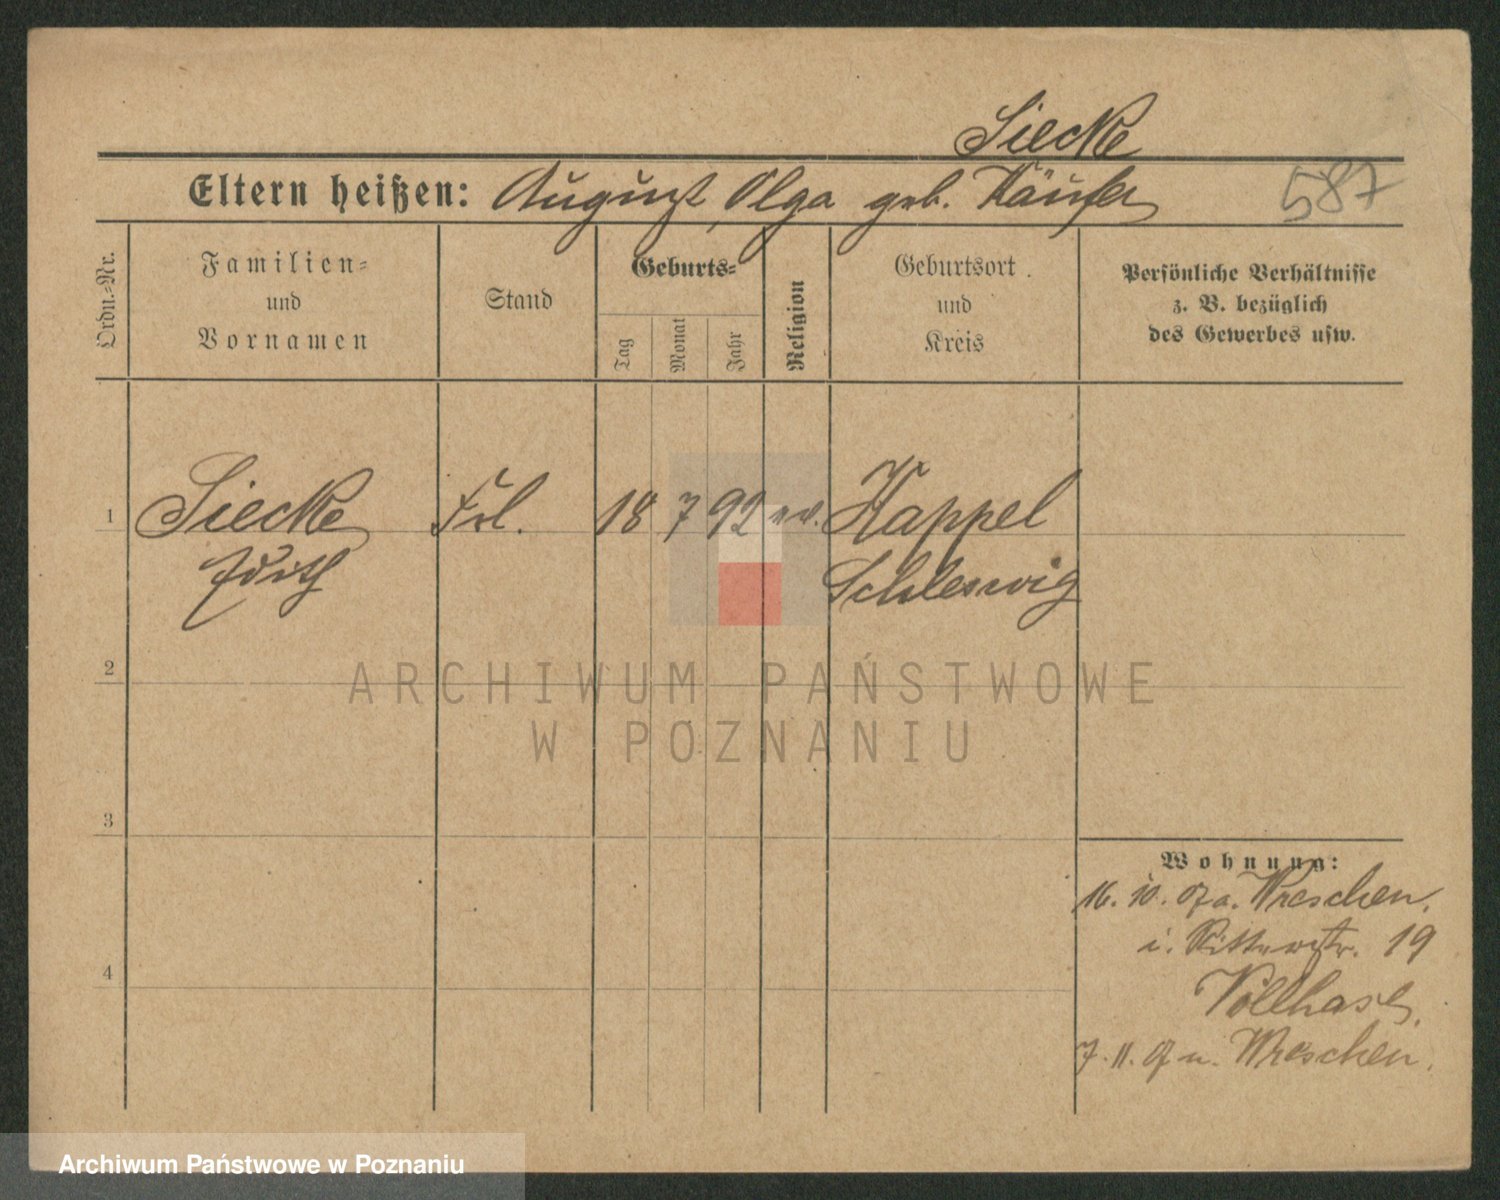 Siecke
Eltern heißen: August, Olga geb. Käufer
587
Ordn.-Nr.
Familien-
und
Vornamen
Stand
Geburts-
Tag
Monat
Jahr
Religion
Geburtsort
und
Kreis
Persönliche Verhältnisse
z. B. bezüglich
des Gewerbes usw.
1
Siecke Frl. 18 7 92 ev. Kappel
Edith Schleswig
2
ARCHIWUM PAŃSTWOWE
W POZNANIU
3
Wohnung:
16. 10. 07 a. Wreschen.
i. Ritterstr. 19
Vollhase.
4
7. 11. 07 n. Wreschen.
Archiwum Państwowe w Poznaniu